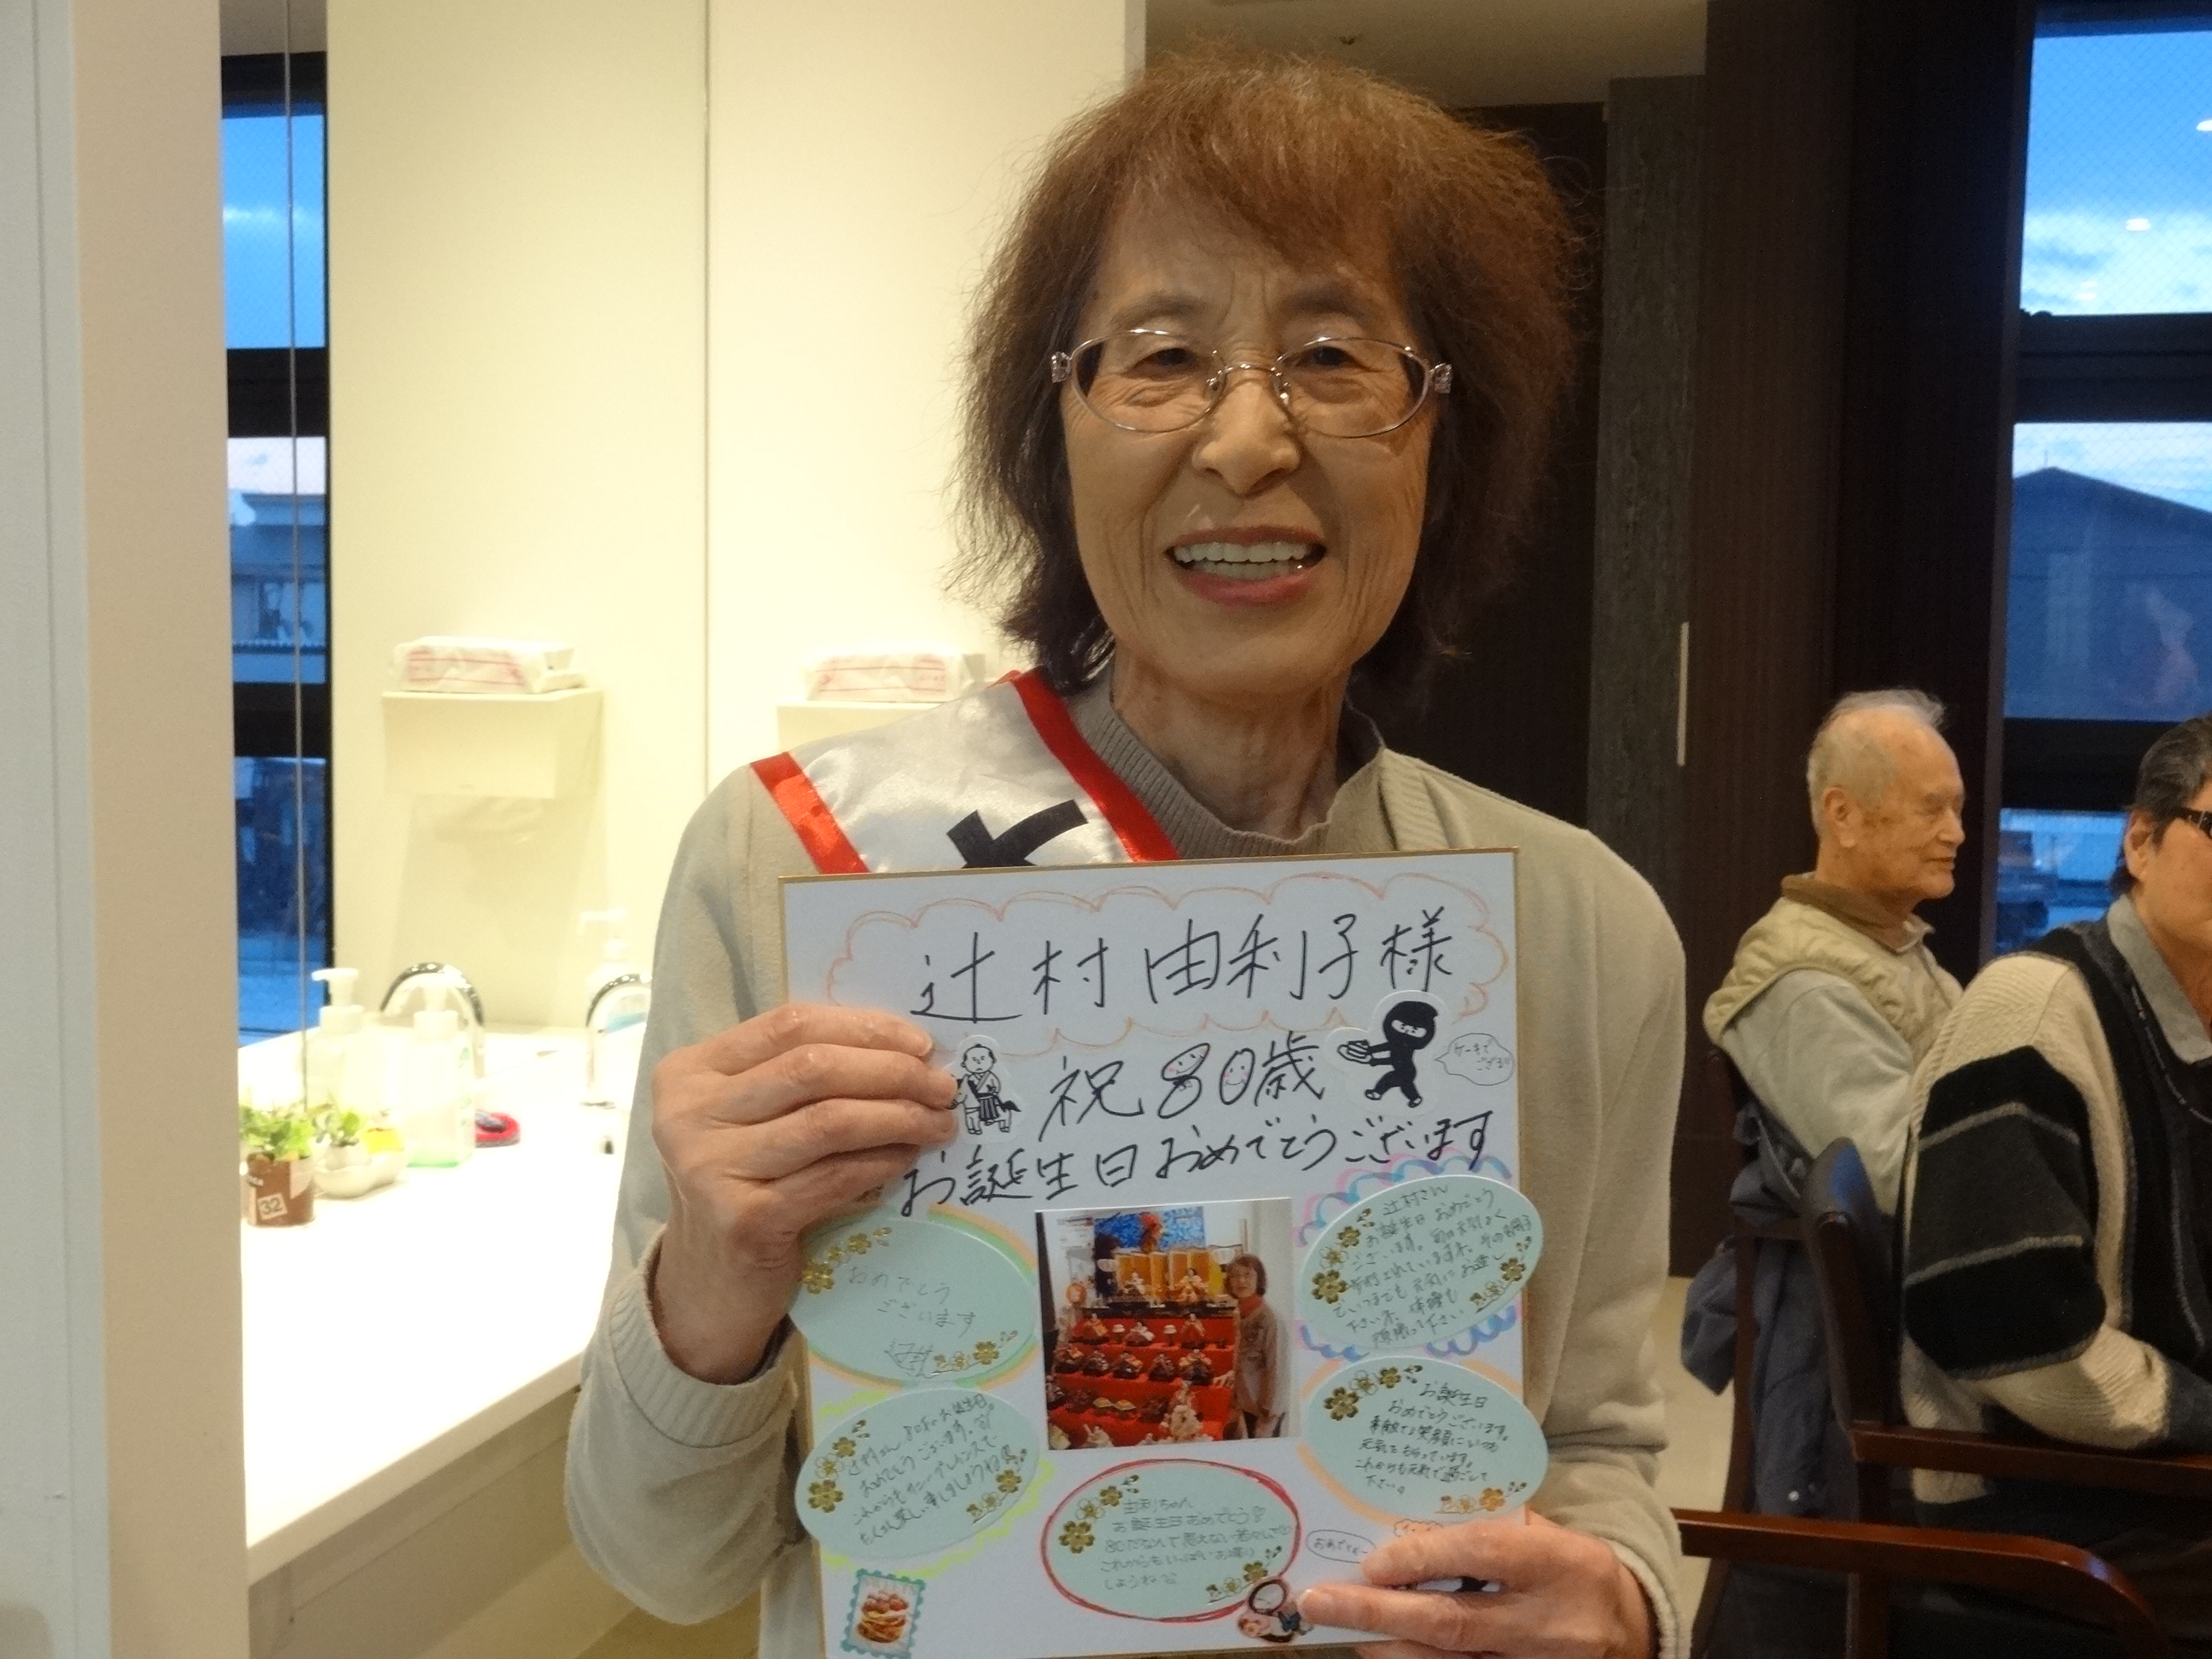 辻村由利子様
祝80歳
ケーキで
ござる!!
お誕生日おめでとうございます
おめでとう
ございます
辻村さん
お誕生日おめでとう
ございます。
下さい
お誕生日
おめでとうございます。
素敵な笑顔にいつも
元気をもらっています。
これからも元気で過ごして
下さい。
辻村さん 80才のお誕生日
おめでとうございます。
由利ちゃん
お誕生日おめでとう
80だなんて思えない
これからもいっぱいお喋り
しようね
おめでとー
32